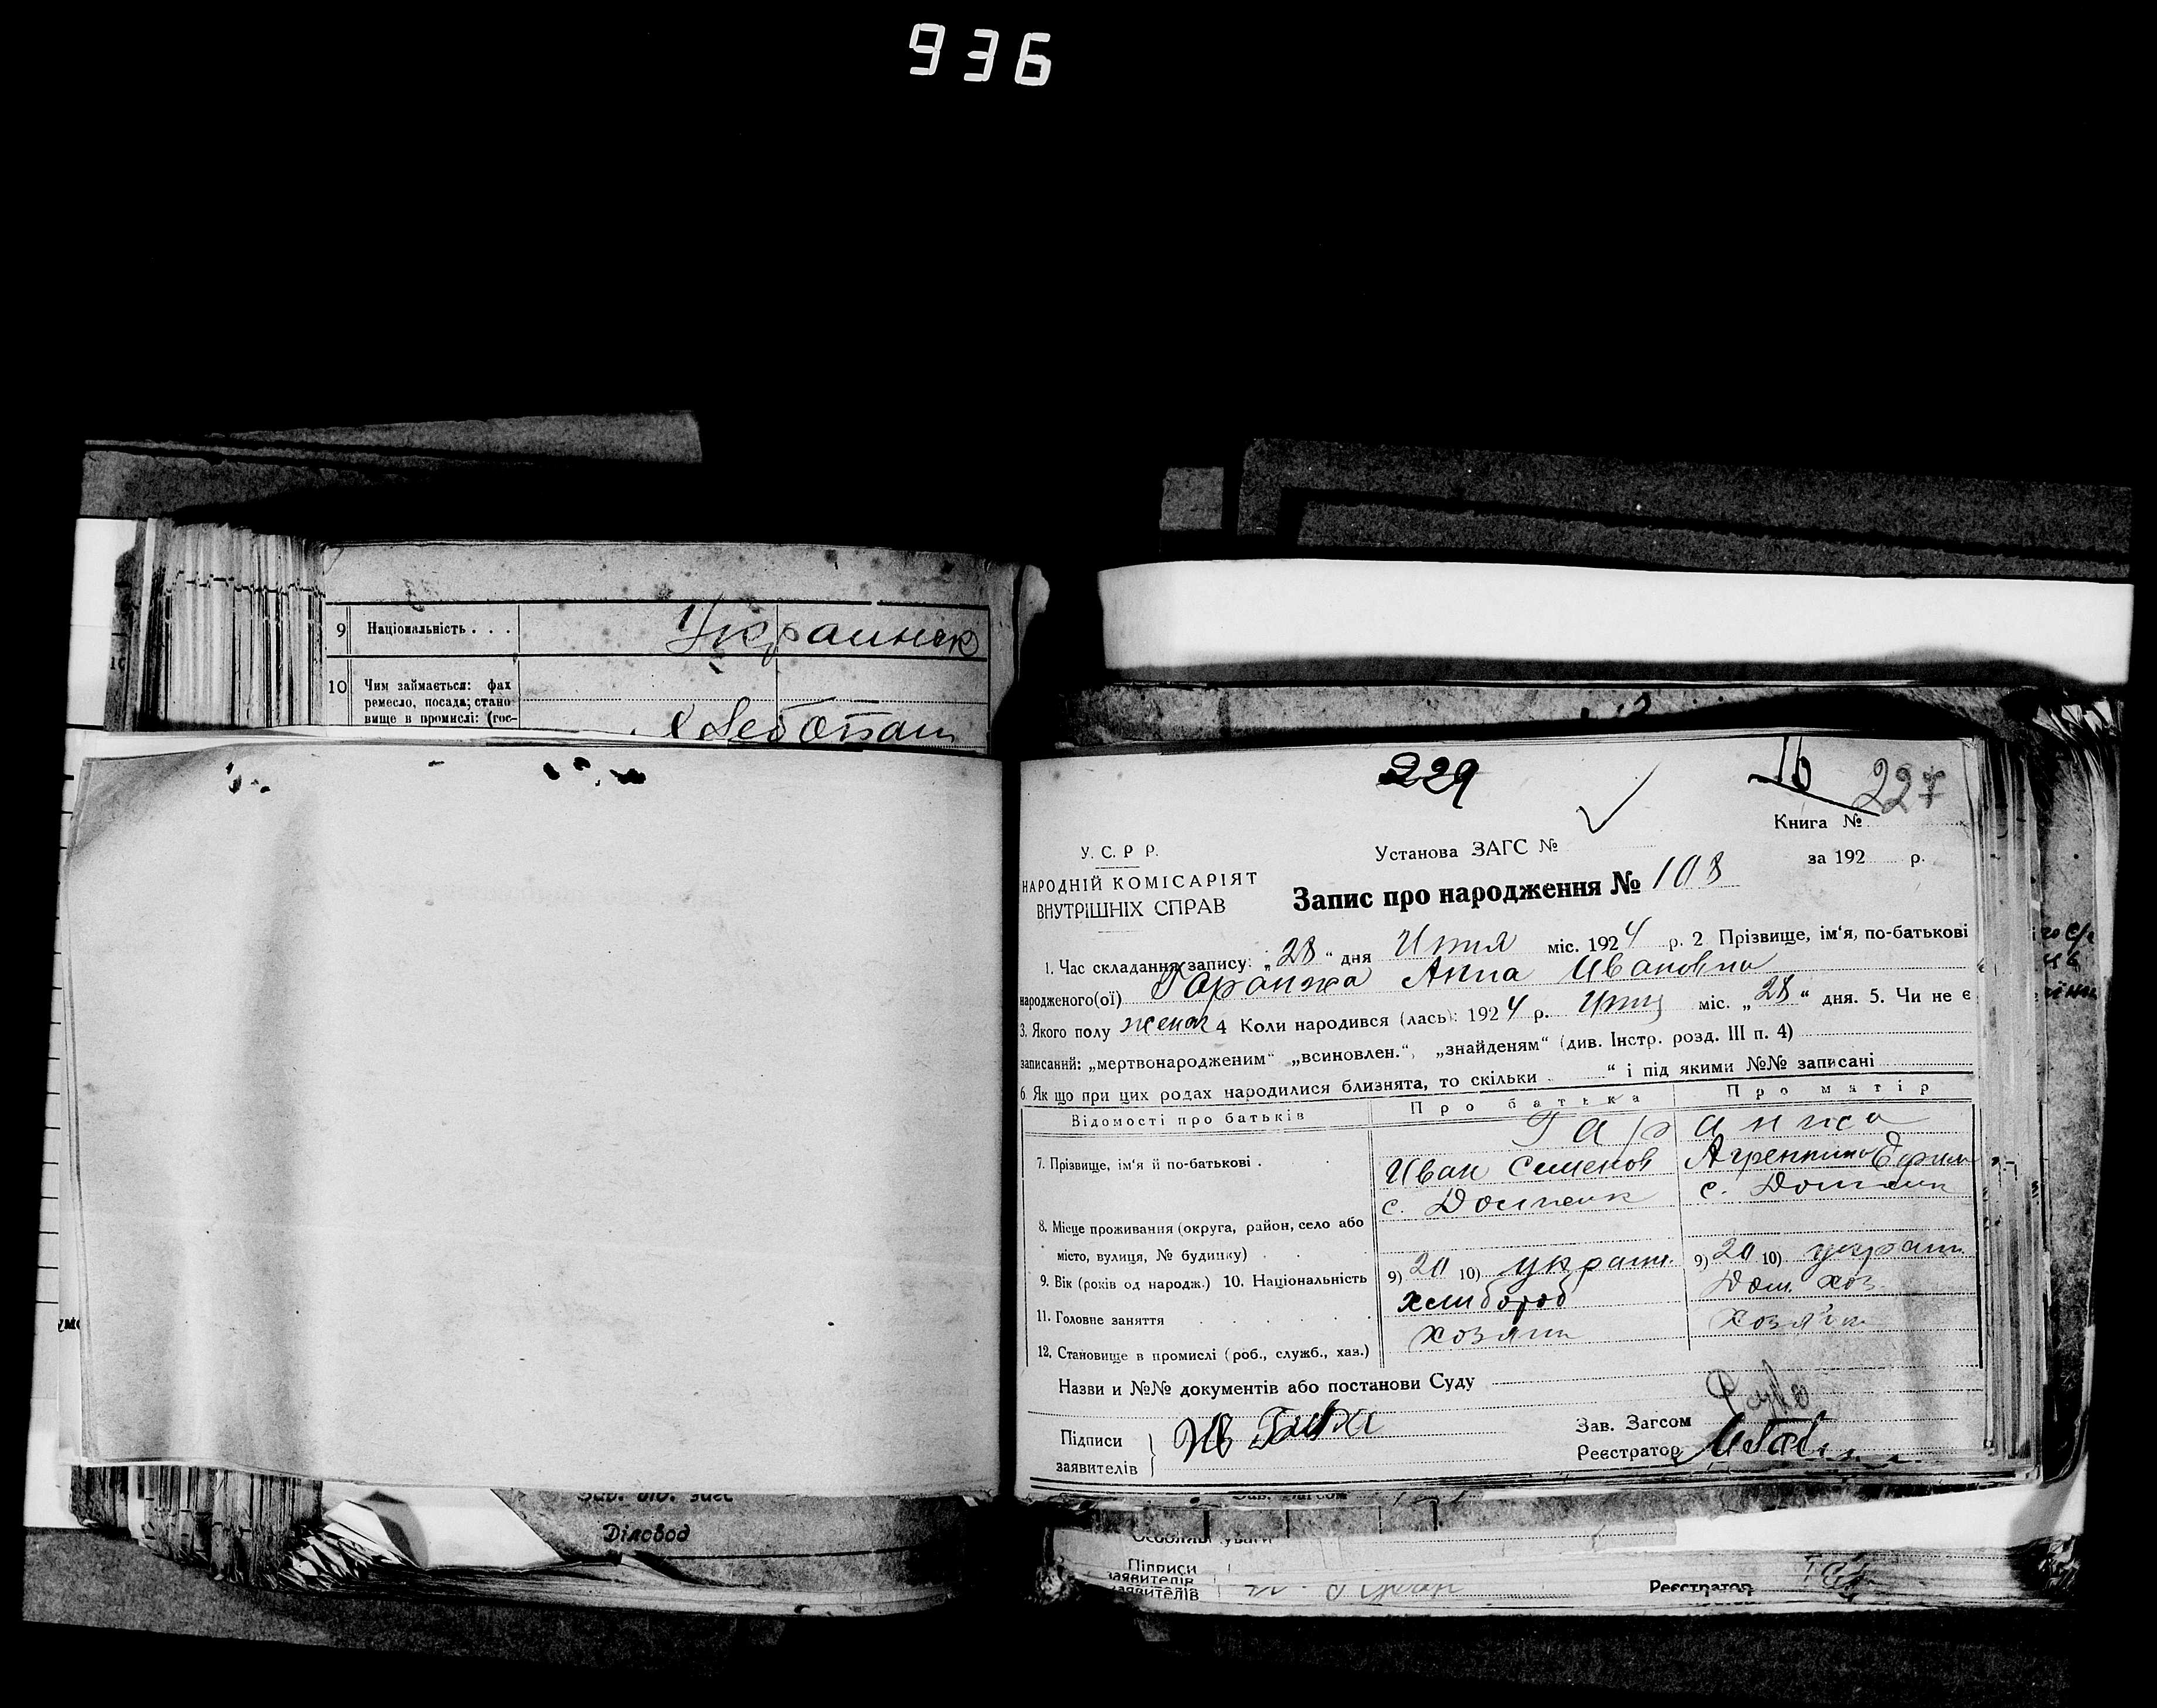 936
9 Національність . . . Украинск
10 Чим займається: фах
ремесло, посада; стано
вище в промислі: (гос-
Діловод
229
16
227
Книга №
У. С. Р Р.
Установа ЗАГС №
за 192 р.
НАРОДНІЙ КОМІСАРІЯТ
ВНУТРІШНІХ СПРАВ
Запис про народження № 108
1. Час складання запису: „28“ дня міс. 1924 р. 2 Прізвище, ім‘я, по-батькові
народженого(ої) Гаранжа Анна Ивановна
3. Якого полу женск 4 Коли народився (лась): 1924 р. міс. „28“ дня. 5. Чи не є
записаний: „мертвонародженим“ „всиновлен.“, „знайденям“ (див. Інстр. розд. III п. 4)
6 Як що при цих родах народилися близнята, то скільки “ і під якими №№ записані
Відомості про батьків Про батька Про матір
Гаранжа
7. Прізвище, ім‘я й по-батькові . Иван Семенов Агрепина Ефим
8. Місце проживання (округа, район, село або с. с.
місто, вулиця, № будинку) .
9. Вік (років од народж.) 10. Національність 9) 20 10) украин. 9) 20 10) украин
11. Головне заняття хлибороб Дом. хоз
12. Становище в промислі (роб., служб., хаз.) хозяин хозяин
Назви и №№ документів або постанови Суду
Підписи
заявителів
Зав. Загсом
Реєстратор
Підписи
заявителів
Реєстратор